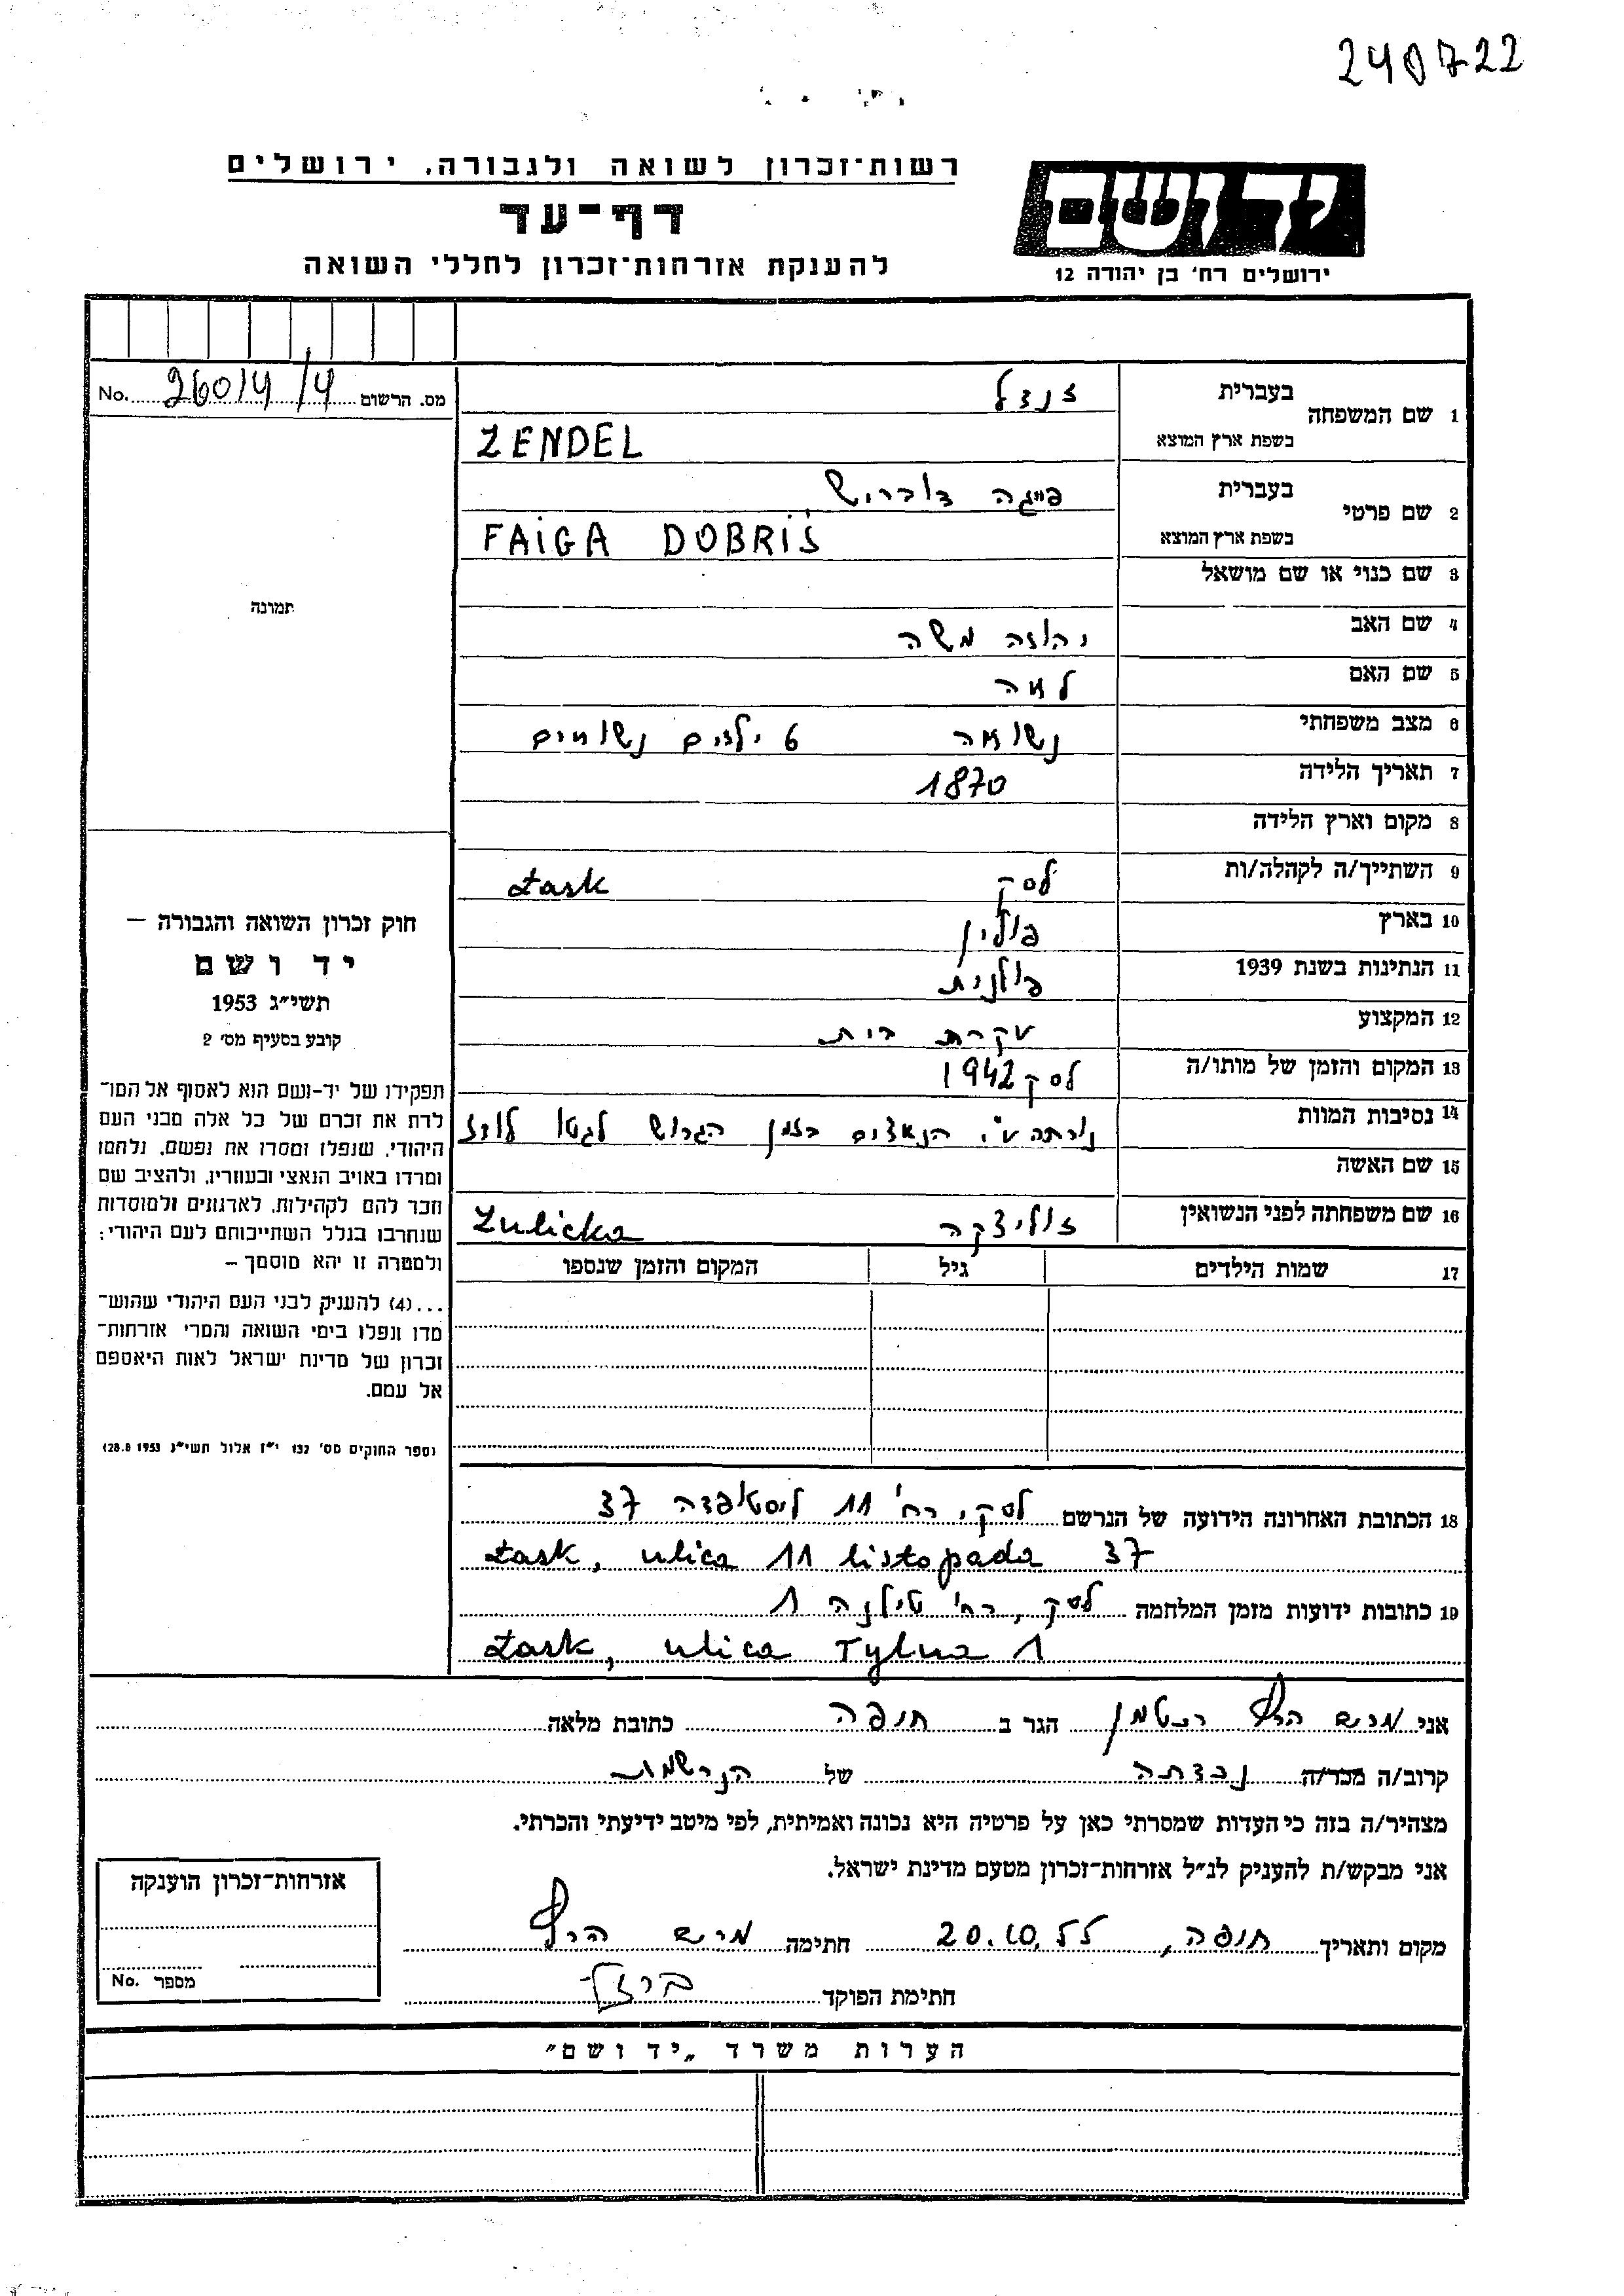 240722
רשות-זכרון לשואה ולגבורה. ירושלים
דף-עד
להענקת אזרחות-זכרון לחללי השואה
יד ושם
ירושלים רח' בן יהודה 12
מס. הרשום 26014/4 No.
תמונה
1 שם המשפחה בעברית זנדל
בשפת ארץ המוצא ZENDEL
2 שם פרטי בעברית פייגה דובריש
בשפת ארץ המוצא FAIGA DOBRIŚ
3 שם כנוי או שם מושאל
4 שם האב יהודה משה
5 שם האם לאה
6 מצב משפחתי נשואה 6 ילדים נשואים
7 תאריך הלידה 1870
8 מקום וארץ הלידה
9 השתייך/ה לקהלה/ות לסק Łask
10 בארץ פולין
11 הנתינות בשנת 1939 פולנית
12 המקצוע עקרת בית
13 המקום והזמן של מותו/ה לסק 1942
14 נסיבות המוות נורתה ע"י הנאצים בזמן הגרוש לגטו לודז
15 שם האשה
16 שם משפחתה לפני הנשואין זוליצקה Zulicka
17 שמות הילדים גיל המקום והזמן שנספו
חוק זכרון השואה והגבורה —
יד ושם
תשי"ג 1953
קובע בסעיף מס' 2
תפקידו של יד-ושם הוא לאסוף אל המו-
לדת את זכרם של כל אלה מבני העם
היהודי, שנפלו ומסרו את נפשם, נלחמו
ומרדו באויב הנאצי ובעוזריו, ולהציב שם
וזכר להם לקהילות, לארגונים ולמוסדות
שנחרבו בגלל השתייכותם לעם היהודי;
ולמטרה זו יהא מוסמך —
...(4) להעניק לבני העם היהודי שהוש-
מדו ונפלו בימי השואה והמרי אזרחות-
זכרון של מדינת ישראל לאות היאספם
אל עמם.
(ספר החוקים מס' 132 י"ז אלול תשי"ג 28.8.1953)
18 הכתובת האחרונה הידועה של הנרשם לסק, רח' 11 ליסטופדה 37
Łask, ulica 11 listopada 37
19 כתובות ידועות מזמן המלחמה לסק, רח' טילנה 1
Łask, ulica Tylna 1
אני הגר ב חיפה כתובת מלאה
קרוב/ה מכר/ה נכדתה של הנרשמת
מצהיר/ה בזה כי העדות שמסרתי כאן על פרטיה היא נכונה ואמיתית, לפי מיטב ידיעתי והכרתי.
אני מבקש/ת להעניק לנ"ל אזרחות-זכרון מטעם מדינת ישראל.
מקום ותאריך חיפה, 20.10.55 חתימה
חתימת הפוקד
אזרחות-זכרון הוענקה
מספר No.
הערות משרד „יד ושם"